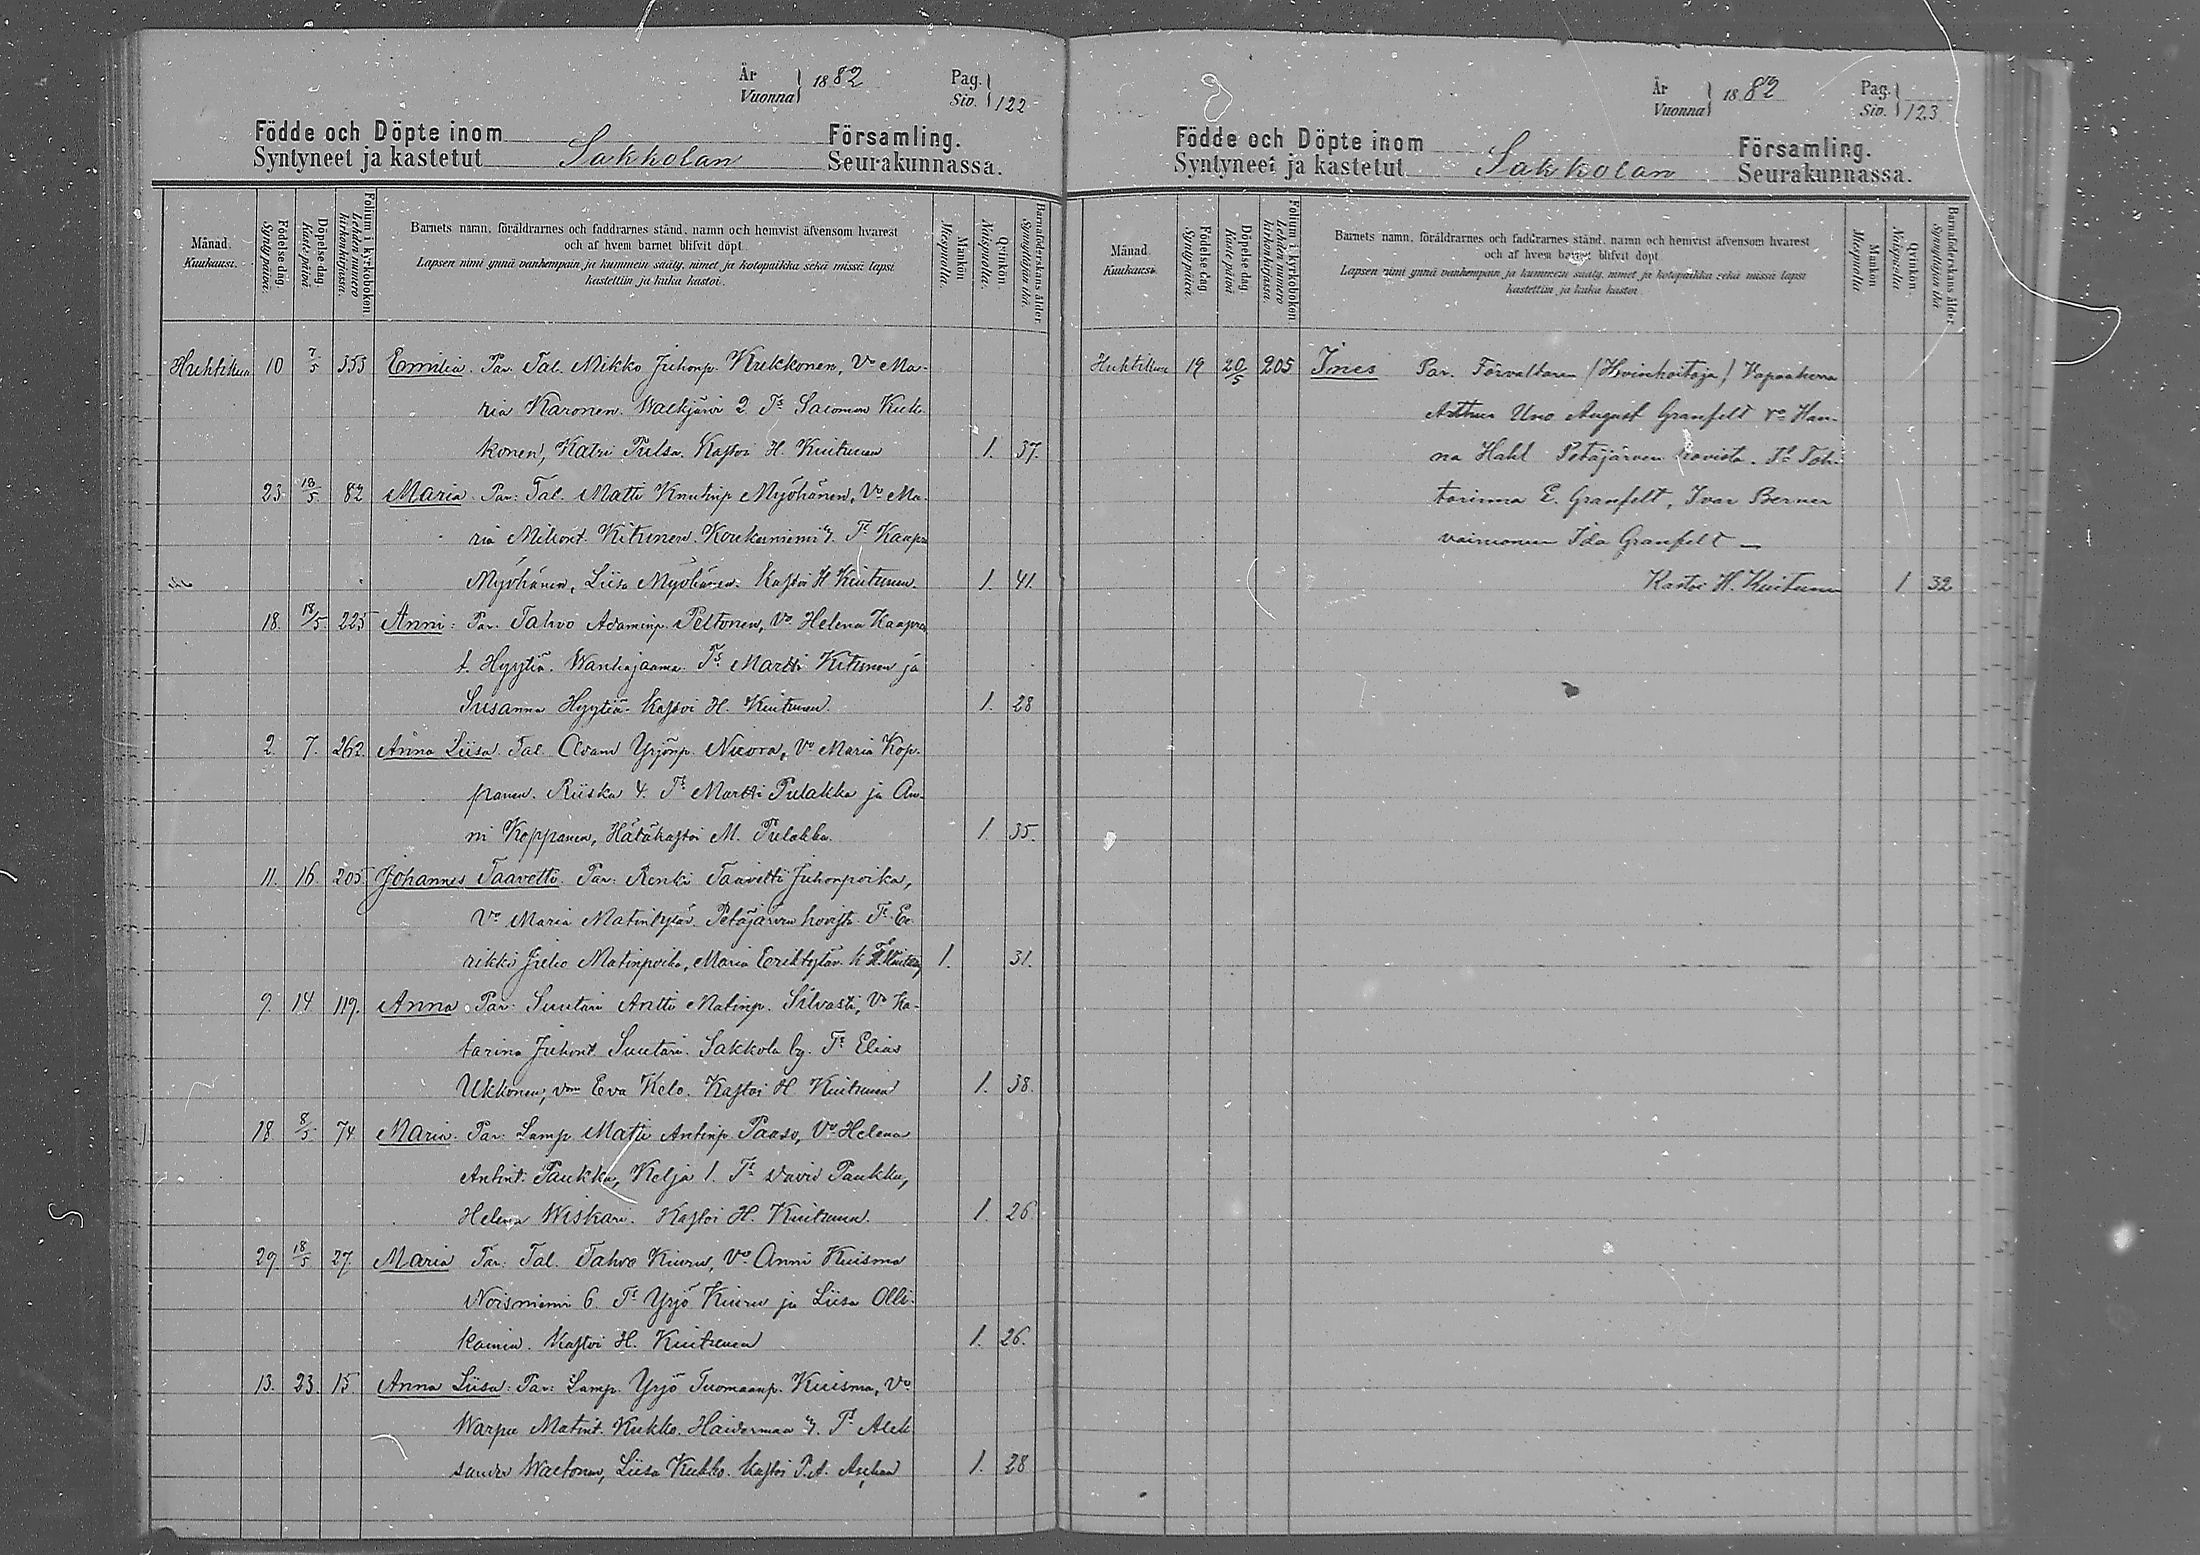 År
Vuonna } 1882
Pag.
Siv. } 122
Födde och Döpte inom Församling.
Syntyneet ja kastetut Sakkolan Seurakunnassa.
Månad.
Kuukausi.
Födelse-dag.
Syntypäivä.
Döpelse-dag.
Kaste-päivä
Folium i kyrkoboken
Lehden numero
kirkonkirjassa.
Barnets namn, föräldrarnes och faddrarnes stånd, namn och hemvist äfvensom hvarest
och af hvem barnet blifvit döpt.
Lapsen nimi ynnä vanhempain ja kummein sääty, nimet ja kotopaikka sekä missä lapsi
kastettiin ja kuka kastoi.
Mankön
Miespuolia.
Qvinkön
Naispuolia.
Barnaföderskans ålder
Synnyttäjän ikä.
Huhtikuu 10 7/5 353 Emilia. Par. Tal. Mikko Juhonp. Kukkonen, Vo Ma-
ria Karonen. Walkjärvi 2 Ts Salomon Kuk-
konen, Katri Pulsa. Kastoi H. Kuitunen 1. 37.
23 18/5 82 Maria. Par: Tal. Matti Knutinp Myöhänen, Vo Ma-
ria Mikont. Kitunen. Koukunniemi 7. Ts Kaapro
Myöhänen, Liisa Myöhänen. Kastoi H Kuitunen. 1. 41.
18. 18/5 225 Anni: Par. Tahvo Adaminp. Peltonen, Vo Helena Kaapron
t. Hyytiä. Wanhajaama. Ts Martti Kitunen ja
Susanna Hyytiä. Kastoi H. Kuitunen. 1. 28
2. 7. 262. Anna Liisa. Tal. Adam Yrjönp. Nuora, Vo Maria Kop-
panen. Riiska 4. Ts Martti Pulakka ja An-
ni Koppanen, Hätäkastoi M. Pulakka. 1. 35.
11. 16. 205 Johannes Taavetti. Par: Renki Taavetti Juhonpoika,
Vo Maria Matintytär. Petäjärven hovista. Ts Ee-
rikki Juho Matinpoika, Maria Eeriktytär. K H. Kuitunen 1. 31.
9. 14 119. Anna Par: Suutari Antti Matinp. Silvasti, Vo Ka-
tarina Juhont Suutari. Sakkola by. Ts Elias
Ukkonen, vm Eva Kelo. Kastoi H Kuitunen 1. 38.
18 8/5 74 Maria. Par: Lamp Matti Antinp Paaso, Vo Helena
Antint. Paukku, Kelja 1. Ts David Paukku,
Helena Wiskari. Kastoi H. Kuitunen. 1. 26
29 18/5 27. Maria Par: Tal. Tahvo Kiuru, Vo Anni Kuisma
Noisniemi 6. Ts Yrjö Kiuru ja Liisa Olli-
kainen. Kastoi H. Kuitunen 1. 26.
13. 23. 15 Anna Liisa: Par: Lamp. Yrjö Tuomaanp. Kuisma, Vo
Warpu Matint. Kukko. Haiderman 7. Ts Alek
sander Waltonen, Liisa Kukko. Kastoi P.A. 1. 28
År
Vuonna } 1882
Pag.
Siv. } 123
Födde och Döpte inom Församling.
Syntyneet ja kastetut Sakkolan Seurakunnassa.
Månad.
Kuukausi.
Födelse-dag
Syntypäivä.
Döpelse-dag
Kaste-päivä
Folium i kyrkoboken
Lehden numero
kirkonkirjassa.
Barnets namn, föräldrarnes och faddrarnes stånd, namn och hemvist äfvensom hvarest
och af hvem barnet blifvit döpt
Lapsen nimi ynnä vanhempain ja kummein sääty, nimet ja kotopaikka sekä missä lapsi
kastettiin ja kuka kastoi
Mankön
Miespuolia
Qvinkön
Naispuolia
Barnaföderskans ålder
Synnyttäjän ikä
Huhtikuu 19 20/5 205 Ines Par. Förvaltaren (Hovinhoitaja) Vapaaherra
Arthur Uno August Granfelt Vo Han-
na Hahl Petäjärven hovista. Ts Toh-
torinna E. Granfelt, Ivar Berner
vaimonen Ida Granfelt —
Kastoi H. Kuitunen 1 32